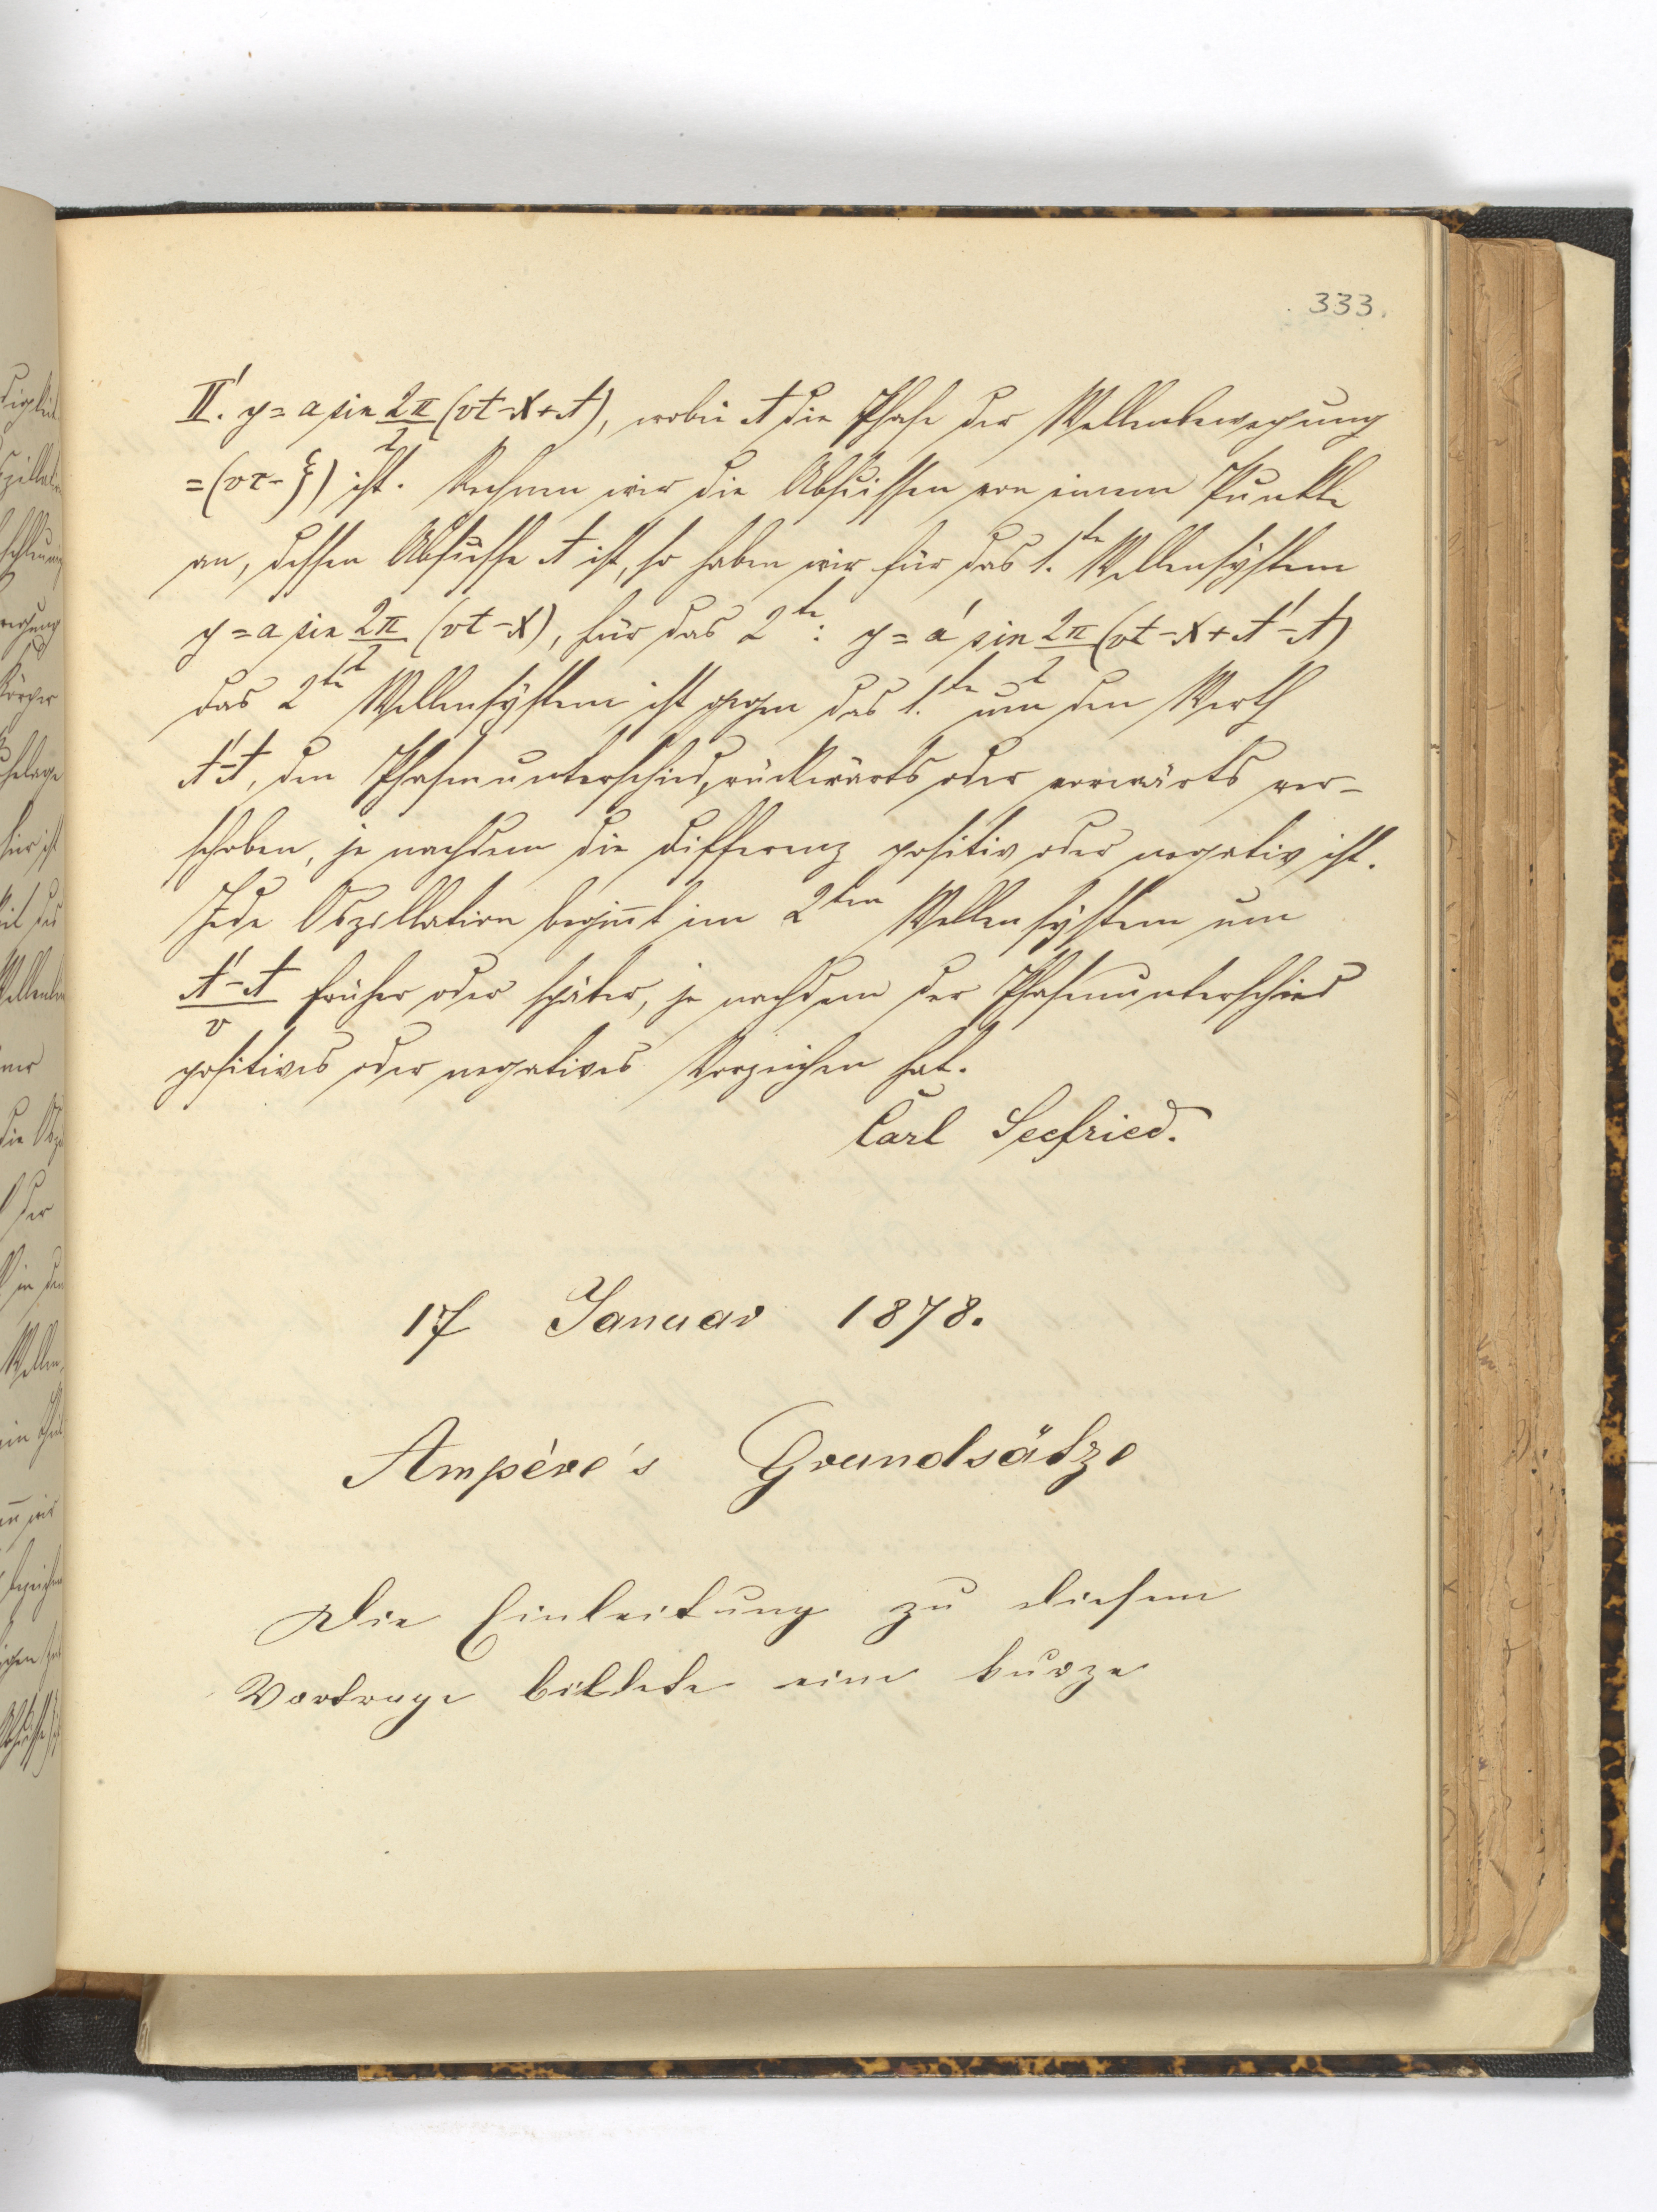 333.
II'. y = a sin 2π/λ (vt-x+A), wobei A die Phase der Wellenbewegung
= (vτ-ξ) ist. Rechnen wir die Abscissen von einem Punkte
an, dessen Abscisse A ist, so haben wir für das 1.te Wellensystem
y = a sin 2π/λ (vt-x), für das 2te: y = a' sin 2π/λ (vt-x+A'-A)
das 2te Wellensystem ist gegen das 1.te um den Werth
A'-A, den Phasenunterschied, rückwärts oder vorwärts ver-
schoben, je nachdem die Differenz positiv oder negativ ist.
Jede Oszillation begin̄t im 2ten Wellensystem um
A'-A/v früher oder später, je nachdem der Phasenunterschied
positives oder negatives Vorzeichen hat.
Carl Seefried.
17 Januar 1878.
Ampère's Grundsätze
Die Einleitung zu diesem
Vortrage bildete eine kurze